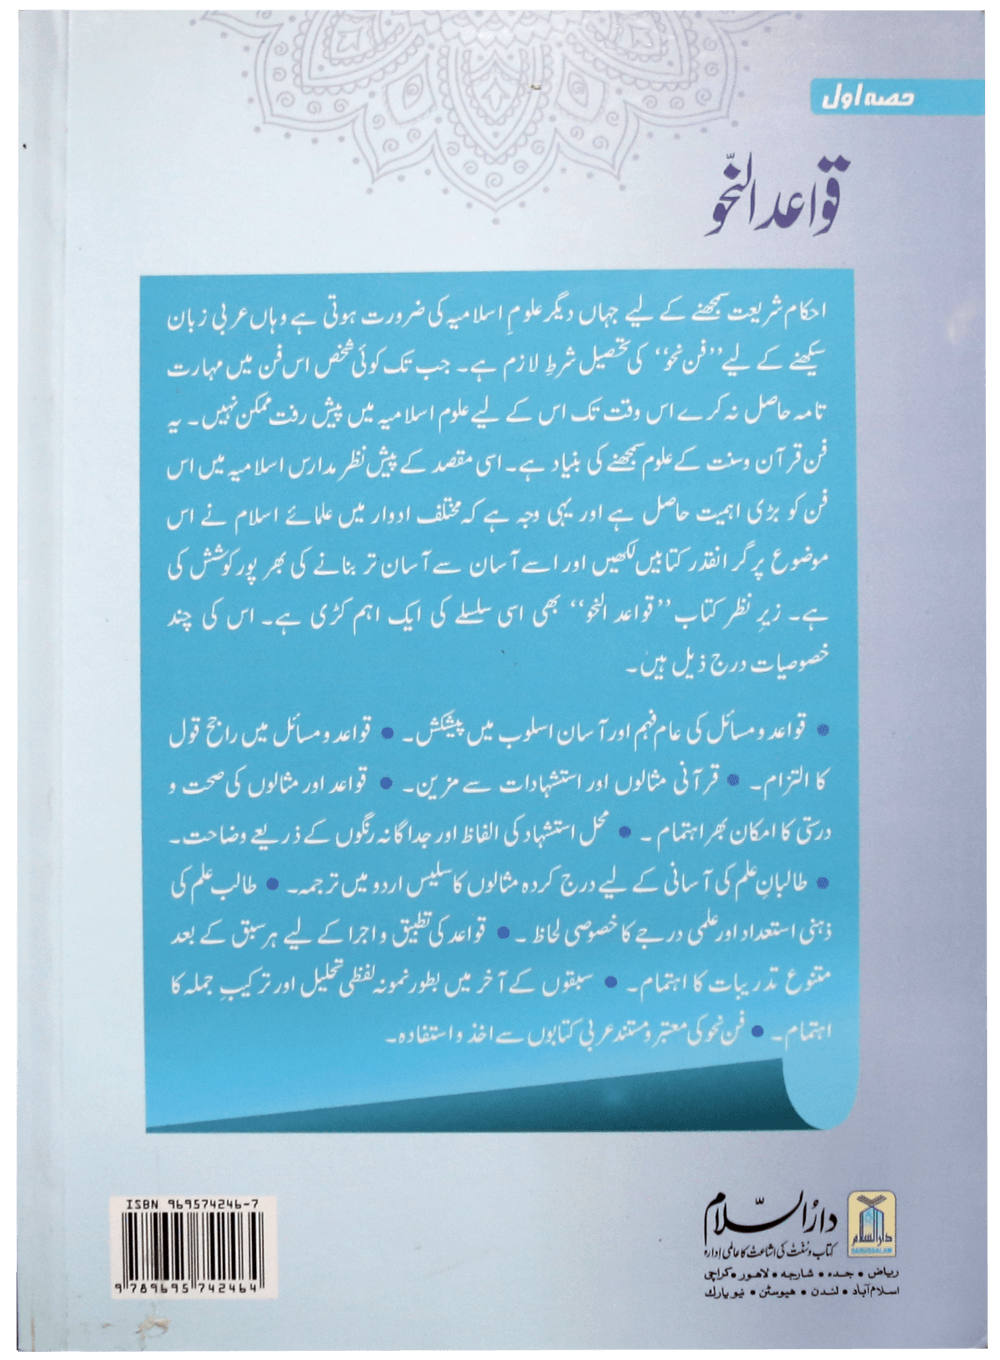 حصہ اول
قواعد النحو
احکام شریعت سمجھنے کے لیے جہاں دیگر علومِ اسلامیہ کی ضرورت ہوتی ہے وہاں عربی زبان
سیکھنے کے لیے ’’فن نحو‘‘ کی تحصیل شرطِ لازم ہے۔ جب تک کوئی شخص اس فن میں مہارت
تامہ حاصل نہ کرے اس وقت تک اس کے لیے علوم اسلامیہ میں پیش رفت ممکن نہیں۔ یہ
فن قرآن وسنت کے علوم سمجھنے کی بنیاد ہے۔ اسی مقصد کے پیش نظر مدارس اسلامیہ میں اس
فن کو بڑی اہمیت حاصل ہے اور یہی وجہ ہے کہ مختلف ادوار میں علمائے اسلام نے اس
موضوع پر گرانقدر کتابیں لکھیں اور اسے آسان سے آسان تر بنانے کی بھرپور کوشش کی
ہے۔ زیرِ نظر کتاب ’’قواعد النحو‘‘ بھی اسی سلسلے کی ایک اہم کڑی ہے۔ اس کی چند
خصوصیات درج ذیل ہیں۔
• قواعد و مسائل کی عام فہم اور آسان اسلوب میں پیشکش۔ • قواعد و مسائل میں راجح قول
کا التزام۔ • قرآنی مثالوں اور استشہادات سے مزین۔ • قواعد اور مثالوں کی صحت و
درستی کا امکان بھر اہتمام۔ • محل استشہاد کی الفاظ اور جداگانہ رنگوں کے ذریعے وضاحت۔
• طالبانِ علم کی آسانی کے لیے درج کردہ مثالوں کا سلیس اردو میں ترجمہ۔ • طالب علم کی
ذہنی استعداد اور علمی درجے کا خصوصی لحاظ۔ • قواعد کی تطبیق و اجرا کے لیے ہر سبق کے بعد
متنوع تدریبات کا اہتمام۔ • سبقوں کے آخر میں بطور نمونہ لفظی تحلیل اور ترکیبِ جملہ کا
اہتمام۔ • فن نحو کی معتبر و مستند عربی کتابوں سے اخذ و استفادہ۔
ISBN 969574246-7
9 789695 742464
دارُالسّلام
کتاب وسنّت کی اشاعت کا عالمی ادارہ
ریاض • جدہ • شارجہ • لاہور • کراچی
اسلام آباد • لندن • ہیوسٹن • نیو یارک
دارالسلام
DARUSSALAM